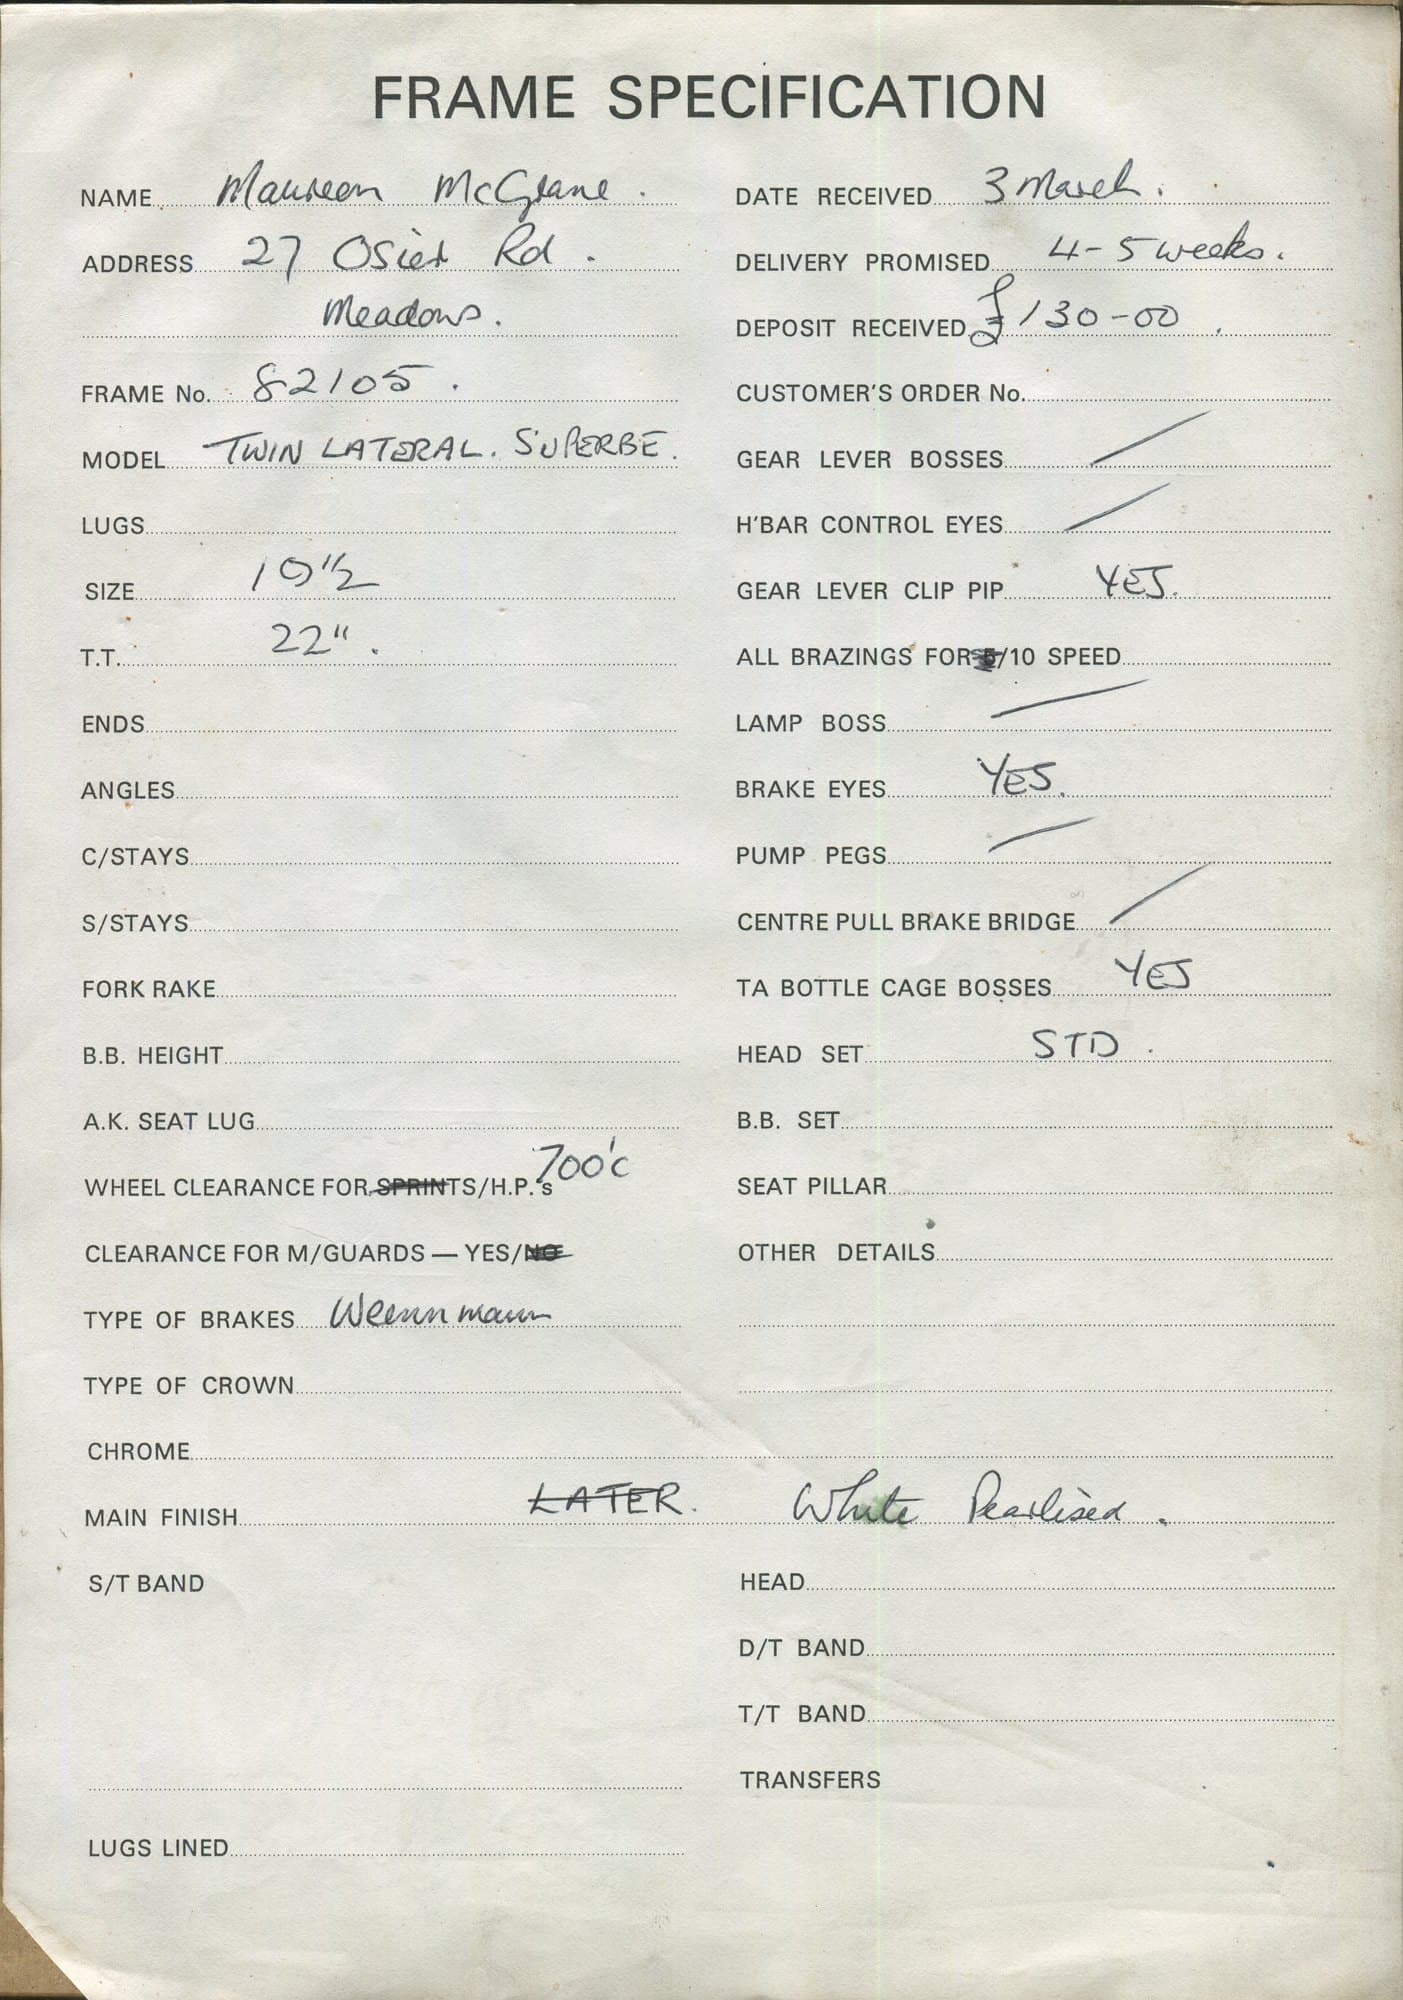 FRAME SPECIFICATION
NAME Maureen McGrane.
ADDRESS 27 Osier Rd.
Meadows.
FRAME No. 82105.
MODEL TWIN LATERAL. SUPERBE.
LUGS
SIZE 19½
T.T. 22".
ENDS
ANGLES
C/STAYS
S/STAYS
FORK RAKE
B.B. HEIGHT
A.K. SEAT LUG
WHEEL CLEARANCE FOR SPRINTS/H.P.'s 700'c
CLEARANCE FOR M/GUARDS — YES/NO
TYPE OF BRAKES Weinnmann
TYPE OF CROWN
DATE RECEIVED 3 March.
DELIVERY PROMISED 4-5 weeks.
DEPOSIT RECEIVED £130-00.
CUSTOMER'S ORDER No.
GEAR LEVER BOSSES /
H'BAR CONTROL EYES /
GEAR LEVER CLIP PIP YES.
ALL BRAZINGS FOR 5/10 SPEED
LAMP BOSS /
BRAKE EYES YES.
PUMP PEGS /
CENTRE PULL BRAKE BRIDGE /
TA BOTTLE CAGE BOSSES YES
HEAD SET STD.
B.B. SET
SEAT PILLAR
OTHER DETAILS
CHROME
MAIN FINISH LATER. White Pearlised.
S/T BAND
LUGS LINED
HEAD
D/T BAND
T/T BAND
TRANSFERS